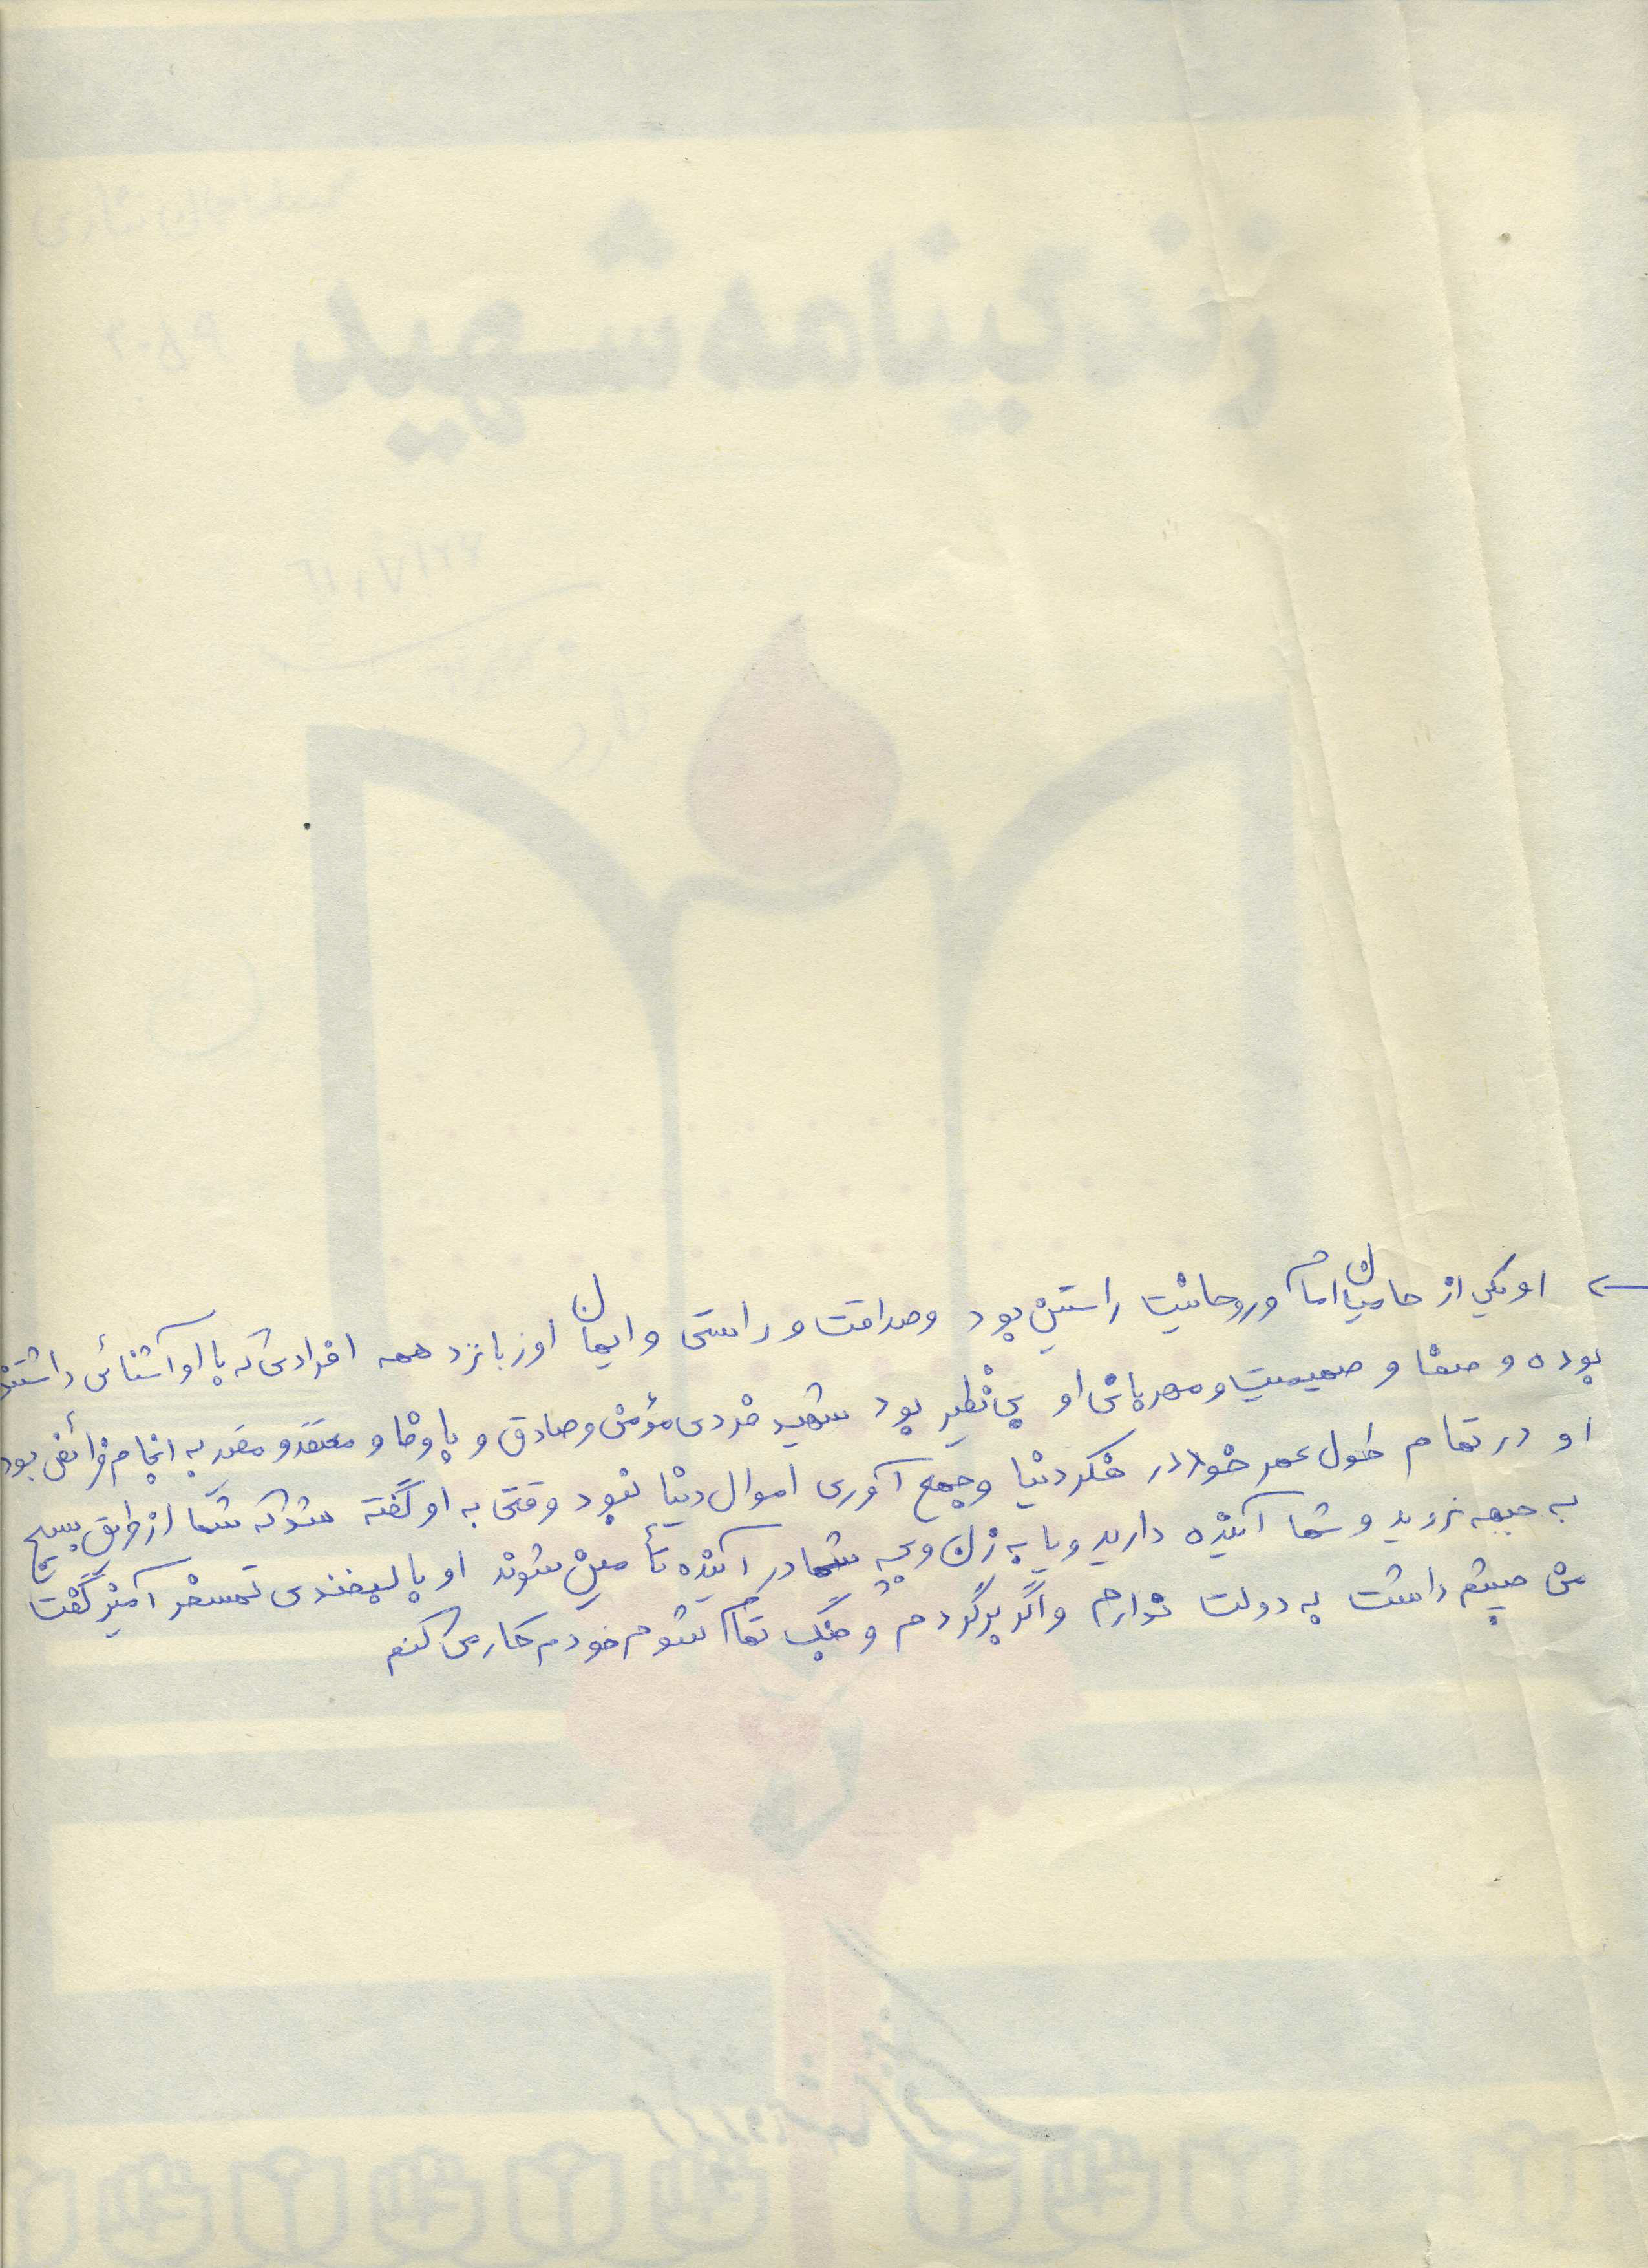 زندگینامه شهید
او یکی از حامیان امام و روحانیت راستین بود و صداقت و راستی و ایمان او زبانزد همه افرادی که با او آشنائی داشتند
بوده و صفا و صمیمیت و مهربانی او بی نظیر بود شهید فردی مؤمن و صادق و باوفا و معتقد و مقید به انجام فرائض بود
او در تمام طول عمر خود در فکر دنیا و جمع آوری اموال دنیا نبود وقتی به او گفته شد که شما از طریق بسیج
به جبهه نروید و شما آینده دارید و یا به زن و بچه شما در آینده تأمین شوند او با لبخندی تمسخر آمیز گفت
من چشم داشت به دولت ندارم و اگر برگردم و جنگ تمام شوم خودم کار می کنم